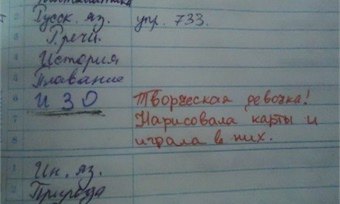 Русск. яз. упр. 733.
Речь.
История
Плавание
ИЗО Творческая девочка!
Нарисовала карты и
играла в них.
Ин. яз.
Природа